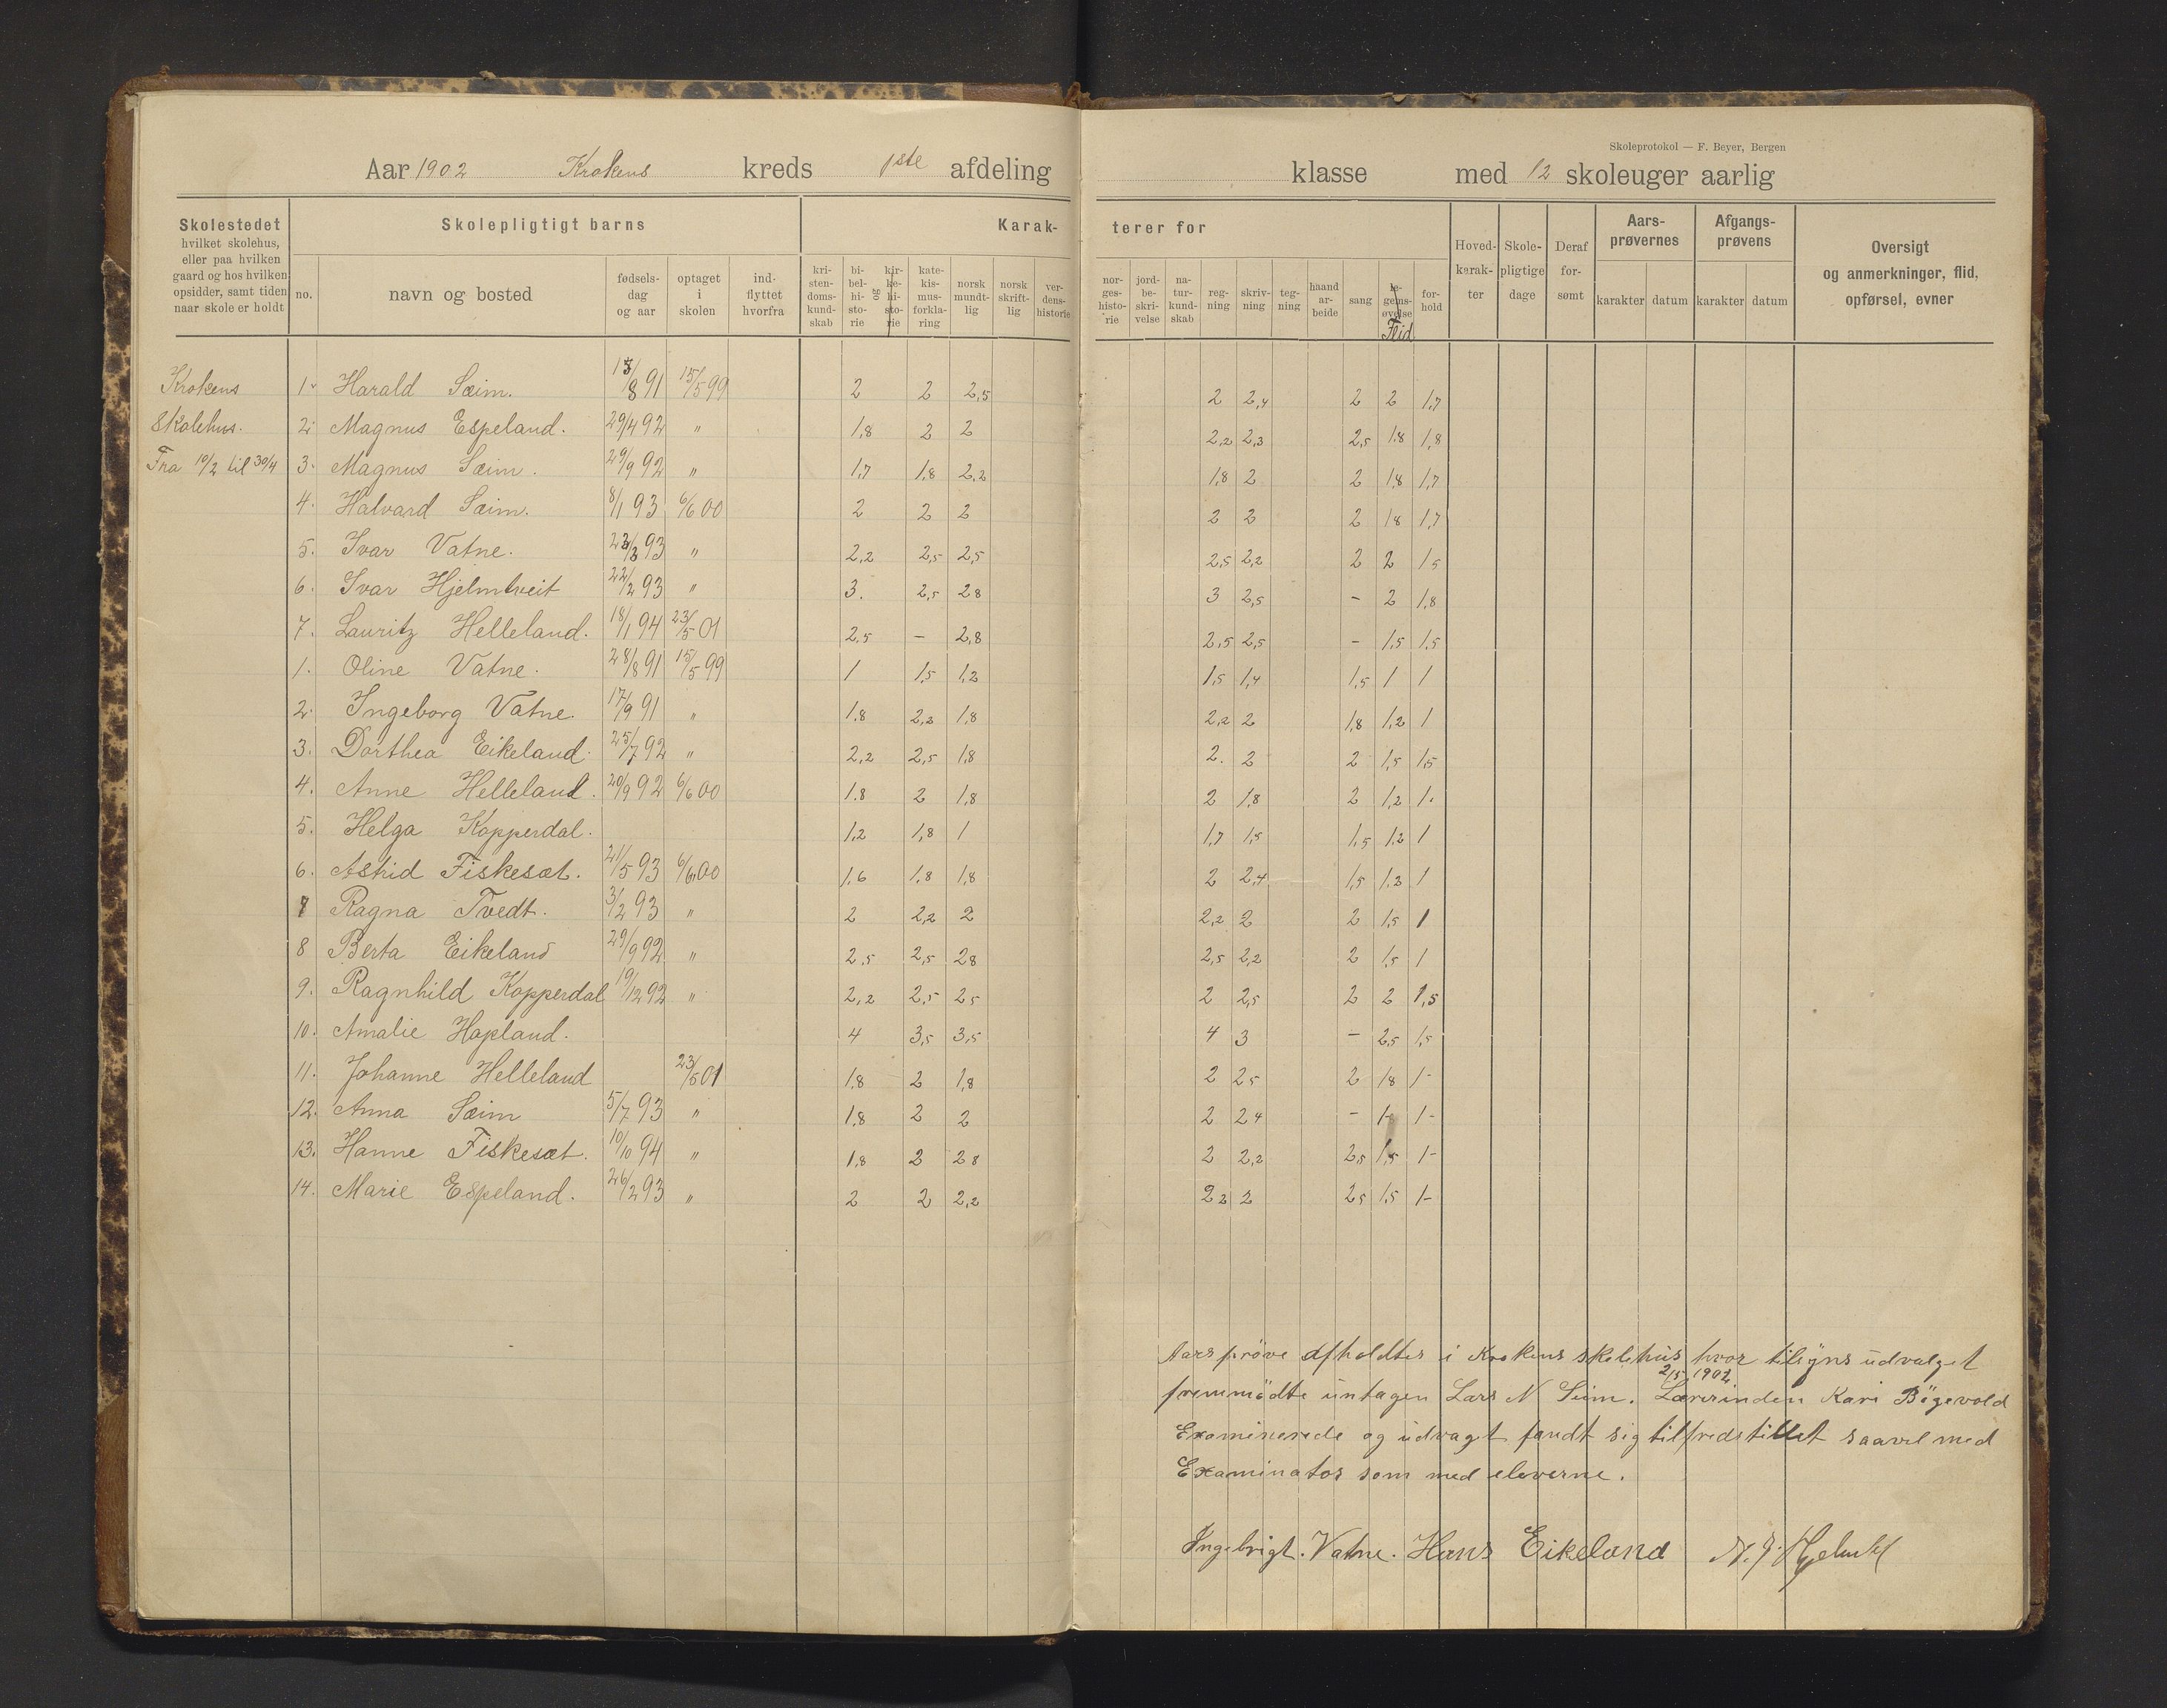 Skoleprotokol — F. Beyer, Bergen
Aar 1902 Krokens kreds 1ste afdeling klasse med 12 skoleuger aarlig
Skolestedet hvilket skolehus, eller paa hvilken gaard og hos hvilken opsidder, samt tiden naar skole er holdt
Skolepligtigt barns
no. navn og bosted fødsels-dag og aar optaget i skolen ind-flyttet hvorfra
Karak-terer for
kri-sten-doms-kund-skab bi-bel-hi-sto-rie og kir-ke-hi-sto-rie kate-kis-mus-forkla-ring norsk mundt-lig norsk skrift-lig ver-dens-historie
nor-ges-histo-rie jord-be-skri-velse na-tur-kund-skab reg-ning skriv-ning teg-ning haand ar-beide sang le-gems-øvelse Flid for-hold
Hoved-karak-ter Skole-pligtige dage Deraf for-sømt
Aars-prøvernes karakter datum
Afgangs-prøvens karakter datum
Oversigt og anmerkninger, flid, opførsel, evner
Krokens 1. Harald Sæim. 13/8 91 15/5 99 2 2 2,5 2 2,4 2 2 1,7
Skolehus. 2. Magnus Espeland. 29/4 92 " 1,8 2 2 2,2 2,3 2,5 1.8 1,8
Fra 10/2 til 30/4 3. Magnus Sæim. 29/9 92 " 1,7 1,8 2,2 1,8 2 2 1,8 1,7
4. Halvard Sæim. 8/1 93 6/6 00 2 2 2 2 2 2 18 1,7
5. Ivar Vatne. 93 " 2,2 2,5 2,5 2,5 2,2 2 2 15
6. Ivar Hjelmtveit 22/2 93 " 3. 2,5 28 3 2,5 - 2 1,8
7. Lauritz Helleland. 18/1 94 23/5 01 2.5 - 2,8 2,5 2,5 - 1,5 1,5
1. Oline Vatne. 28/8 91 15/5 99 1 1,5 1,2 1,5 1,4 1,5 1 1
2. Ingeborg Vatne. 17/9 91 " 1.8 2,2 1,8 2,2 2 1,8 1,2 1
3. Dorthea Eikeland. 25/7 92 " 2,2 2,5 1,8 2. 2 2 1,5 1,5
4. Anne Helleland. 20/9 92 6/6 00 1.8 2 1,8 2 1,8 2 1,2 1.
5. Helga Kopperdal. 1,2 1,8 1 1,7 1,5 1,5 1,2 1
6. Astrid Fiskesæt. 21/5 93 6/6 00 1,6 1,8 1,8 2 2,4 1,5 1,2 1
7 Ragna Tvedt. 3/2 93 " 2 2,2 2 2,2 2 2 1,5 1
8 Berta Eikeland 29/9 92 " 2,5 2,5 28 2,5 2,2 2 1,5 1
9. Ragnhild Kopperdal 19/12 92 " 2,2 2,5 25 2 2,5 2 2 1,5
10. Amalie Hopland. 4 3,5 3,5 4 3 - 2,5 1,5
11. Johanne Helleland 23/5 01 1,8 2 1,8 2 25 2 18 1-
12. Anna Sæim 5/7 93 " 1,8 2 2 2 24 - 1- 1-
13. Hanne Fiskesæt. 10/10 94 " 1,8 2 28 2 2,2 25 1,5 1-
14. Marie Espeland. 26/2 93 " 2 2 2,2 22 2 25 1,5 1-
Aarsprøve afholdtes i Krokens skolehus hvor tilsyns udvalget
2/5 1902
fremmødte untagen Lars N Seim. Lærerinden Kari Bøgevold
Examinerede og udvaget fandt sig tilfredstillet saavel med
Examinator som med eleverne.
Ingebrigt. Vatne. Hans Eikeland